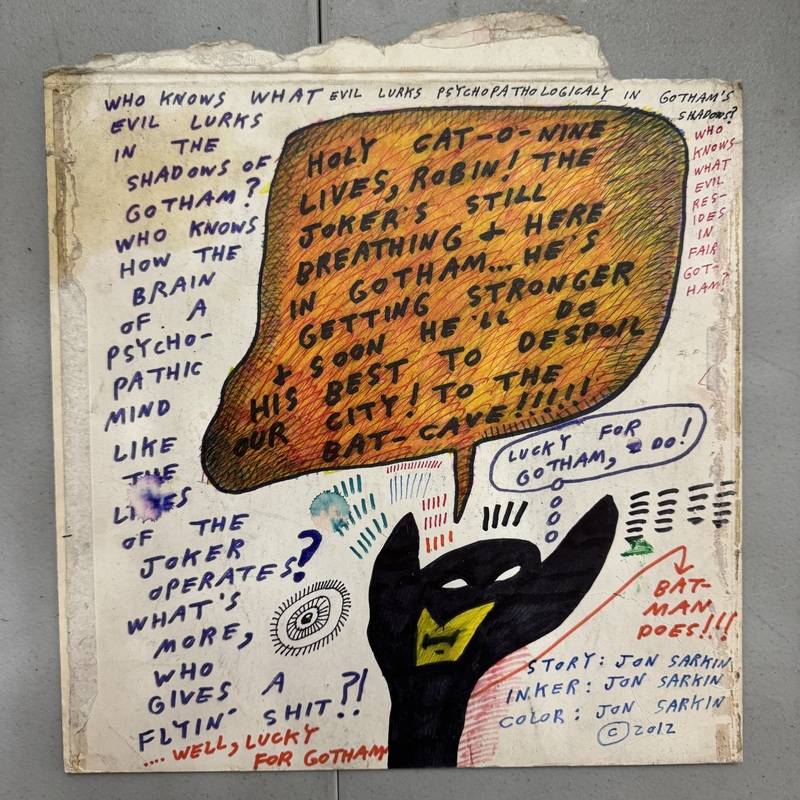 WHO KNOWS WHAT EVIL LURKS PSYCHOPATHOLOGICALY IN GOTHAM'S
SHADOWS?
EVIL LURKS
IN THE
SHADOWS OF
GOTHAM?
WHO KNOWS
HOW THE
BRAIN
OF A
PSYCHO-
PATHIC
MIND
LIKE
THE
LIKES
OF THE
JOKER
OPERATES?
WHAT'S
MORE,
WHO
GIVES A
FLYIN' SHIT?!
.... WELL, LUCKY
FOR GOTHAM
HOLY CAT-O-NINE
LIVES, ROBIN! THE
JOKER'S STILL
BREATHING + HERE
IN GOTHAM... HE'S
GETTING STRONGER
+ SOON HE'LL DO
HIS BEST TO DESPOIL
OUR CITY! TO THE
BAT-CAVE!!!!!!
WHO
KNOWS
WHAT
EVIL
RES-
IDES
IN
FAIR
GOT-
HAM?
LUCKY FOR
GOTHAM, I DO!
BAT-
MAN
DOES!!!
STORY: JON SARKIN
INKER: JON SARKIN
COLOR: JON SARKIN
© 2012